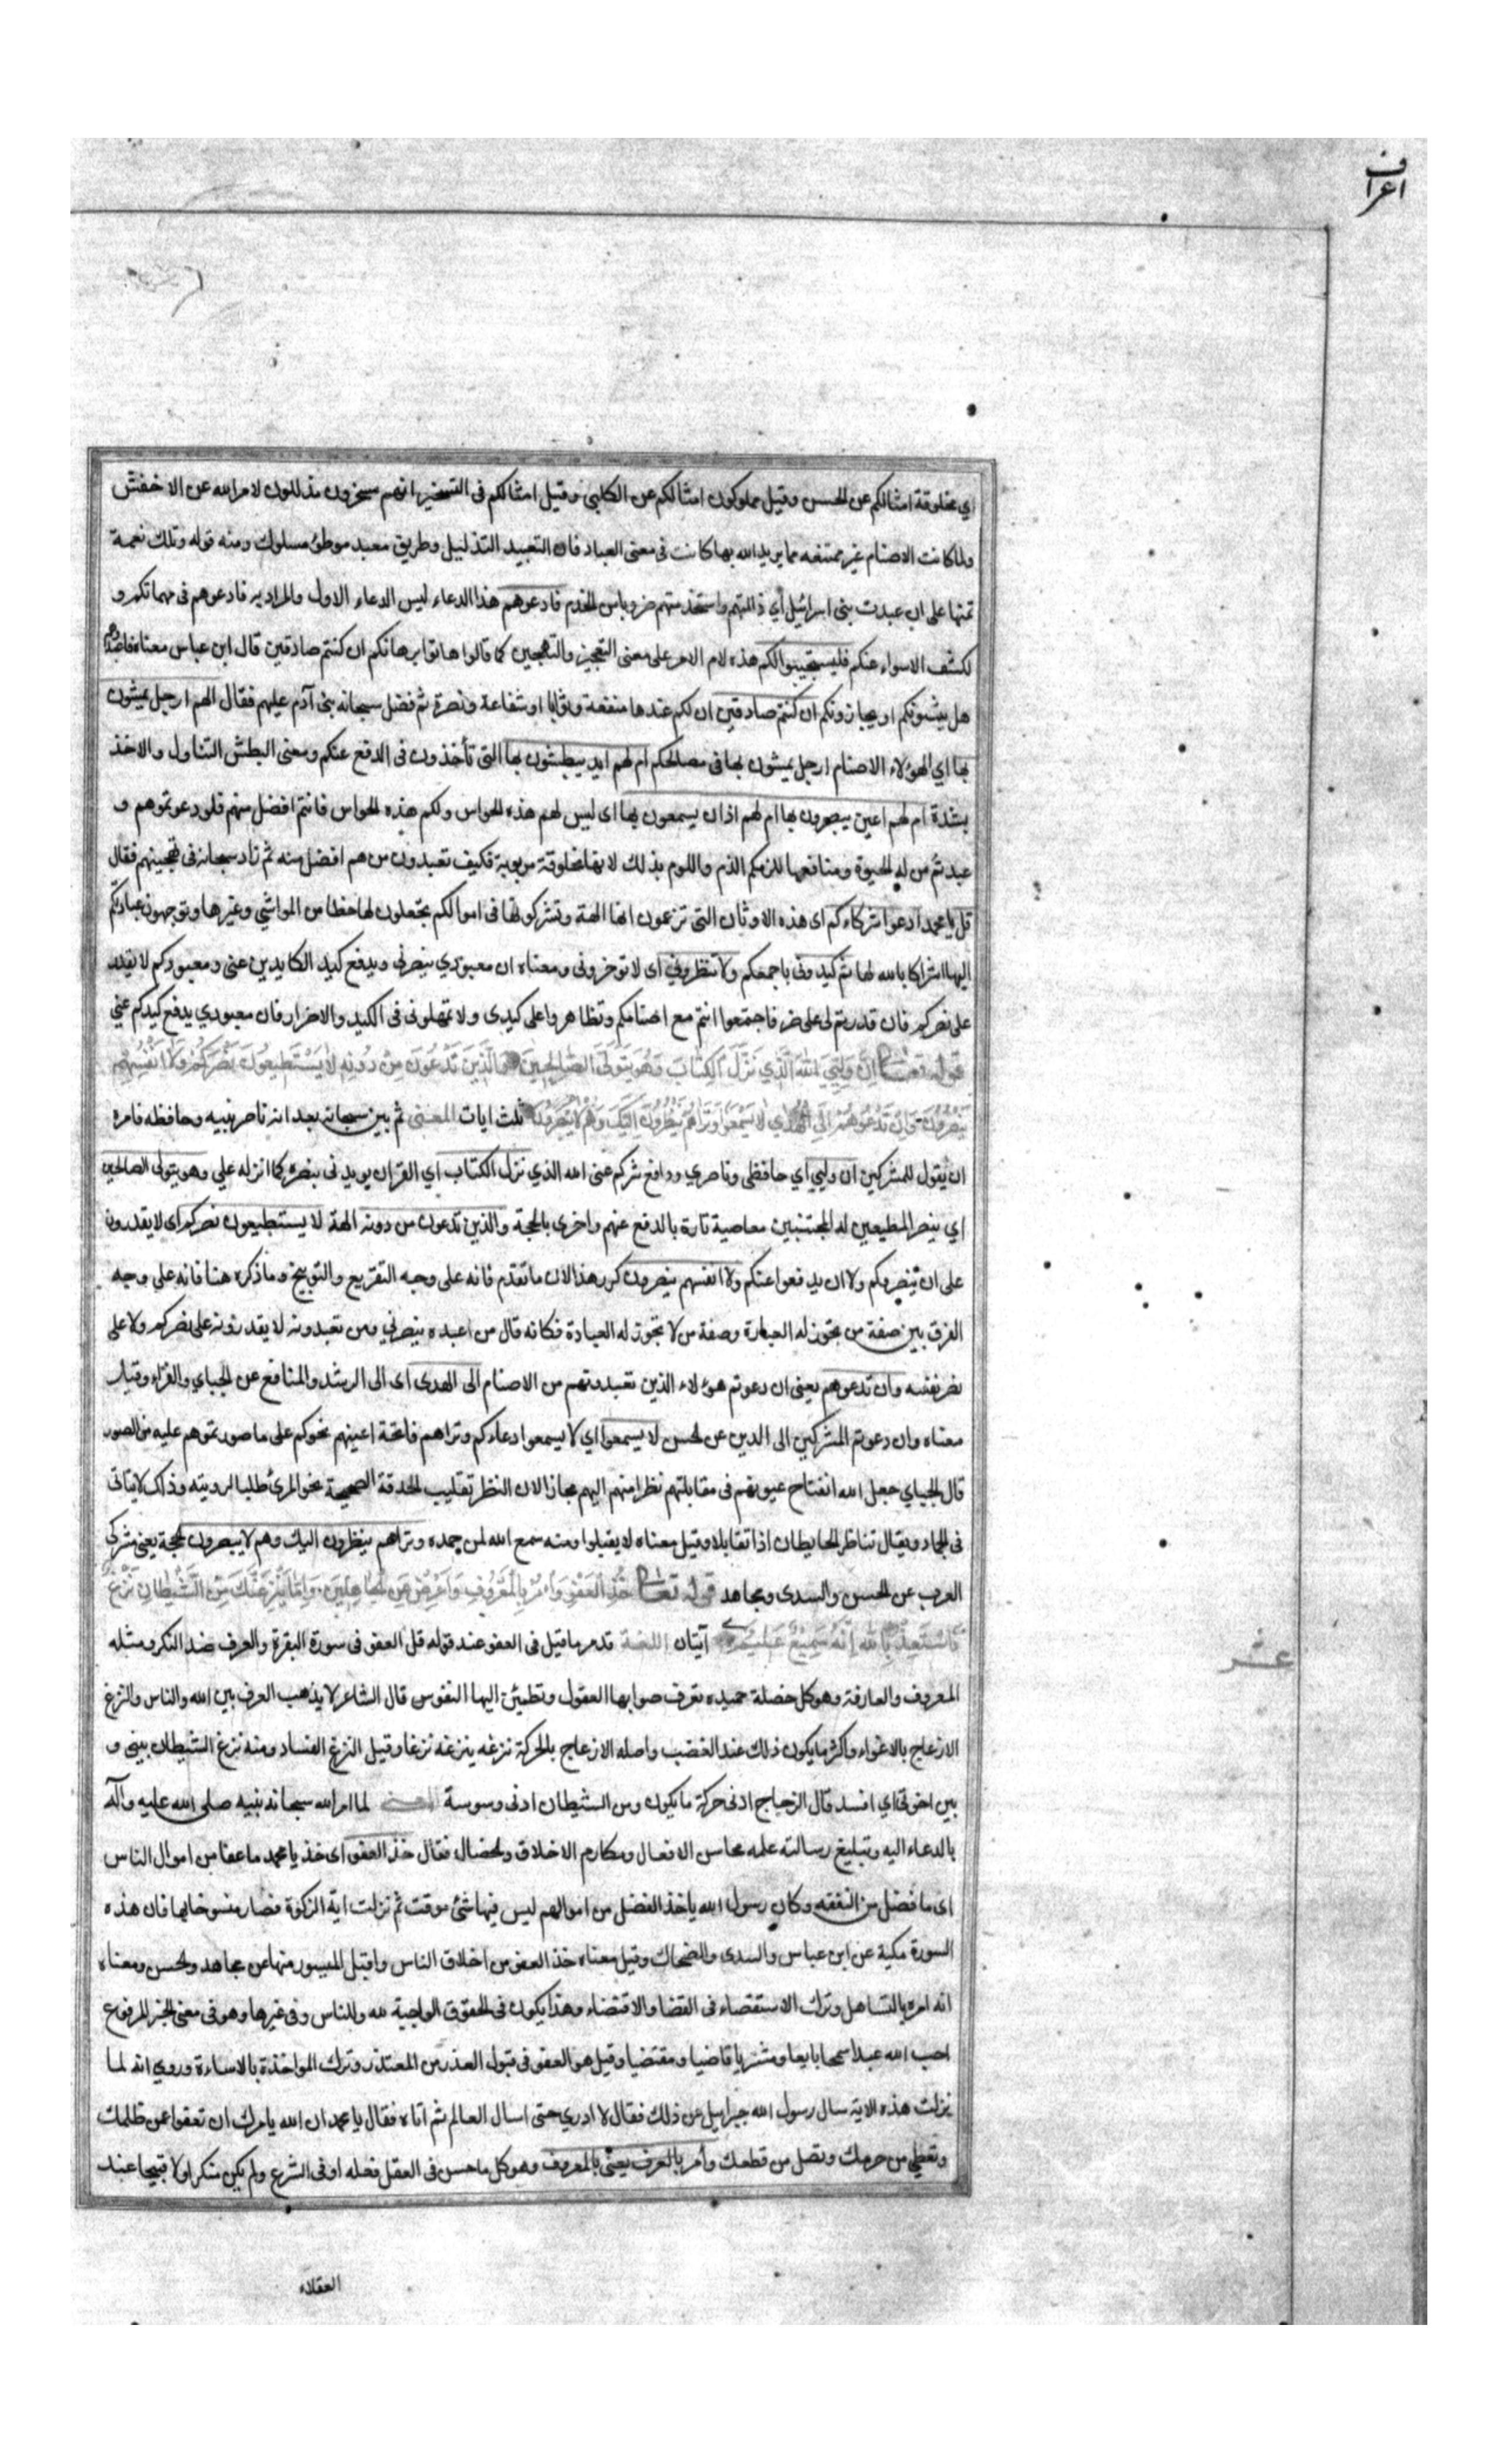 اعراف
اي مخلوقة امثالكم عن الحسن وقيل مملوكون امثالكم عن الكلبي وقيل امثالكم فى التسخير انهم مسخرون مذللون لامر الله عن الاخفش
ولما كانت الاصنام غير ممتنعه مما يريد الله بها كانت فى معنى العباد فان التعبيد التذليل وطريق معبد موطؤ مسلوك ومنه قوله وتلك نعمة
تمنها على ان عبدت بنى اسرائيل أي ذللتهم واستخدمتهم ضروبا من الخدم فادعوهم هذا الدعاء ليس الدعاء الاول والمراد به فادعوهم فى مهماتكم و
لكشف الاسواء عنكم فليستجيبوا لكم هذه لام الامر على معنى التعجيز والتهجين كما قالوا هاتوا برهانكم ان كنتم صادقين قال ابن عباس معناه فاعبدوهم
هل يثيبونكم او يجازونكم ان كنتم صادقين ان لكم عندها منفعة وثوابا او شفاعة ونصرة ثم فضل سبحانه بنى آدم عليهم فقال الهم ارجل يمشون
بها اي الهؤلاء الاصنام ارجل يمشون بها فى مصالحكم ام لهم ايد يبطشون بها التى تأخذون فى الدفع عنكم ومعنى البطش التناول والاخذ
بشدة ام لهم اعين يبصرون بها ام لهم اذان يسمعون بها اى ليس لهم هذه الحواس ولكم هذه الحواس فانتم افضل منهم فلو دعوتموهم و
عبدتم من له الحيوة ومنافعها للزمكم الذم واللوم بذلك لانها مخلوقة مربوبة فكيف تعبدون من هم افضل منه ثم زاد سبحانه فى تهجينهم فقال
قل يا محمد ادعوا شركاءكم اى هذه الاوثان التى تزعمون انها الهة وتشركونها فى اموالكم بجعلون لها حظا من المواشي وغيرها وتوجهون عبادتكم
اليها اشراكا بالله لها ثم كيدونى باجمعكم ولا تنظروني اى لا توخرونى ومعناه ان معبودي ينصرنى ويدفع كيد الكايدين عنى ومعبودكم لا يقدر
على نصركم فان قدرتم لى على ضر فاجتمعوا انتم مع اصنامكم وتظاهروا على كيدى ولا تمهلونى فى الكيد والاضرار فان معبودي يدفع كيدكم عني
قوله تعالى اِنَّ وَلِيِّيَ اللهُ الَّذِي نَزَّلَ الْكِتَابَ وَهُوَ يَتَوَلَّى الصَّالِحِينَ وَالَّذِينَ تَدْعُونَ مِنْ دُونِهِ لَا يَسْتَطِيعُونَ نَصْرَكُمْ وَلَا اَنْفُسَهُمْ
يَنْصُرُونَ وَاِنْ تَدْعُوهُمْ اِلَى الْهُدَي لَا يَسْمَعُوا وَتَرَاهُمْ يَنْظُرُونَ اِلَيْكَ وَهُمْ لَا يُبْصِرُونَ ثلث ايات المعنى ثم بين سبحانه بعد انه ناصر نبيه وحافظه فامره
ان يقول للمشركين ان وليي أي حافظى وناصري ودافع شركم عنى الله الذي نزل الكتاب اي القران يويدنى بنصره كما انزله علي وهو يتولى الصالحين
اي ينصر المطيعين له المجتنبين معاصية تارة بالدفع عنهم واخرى بالحجة والذين تدعون من دونه الهة لا يستطيعون نصركم اى لا يقدرون
على ان ينصروكم ولا ان يدفعوا عنكم ولا انفسهم ينصرون كرر هذا لان ما تقدم فانه على وجه التقريع والتوبيخ وما ذكره هنا فانه على وجه
الفرق بين صفة من يجوز له العبادة وصفة من لا تجوز له العبادة فكانه قال من اعبده ينصرني ومن تعبدونه لا يقدر نه على نصركم ولا على
نصر نفسه وان تدعوهم يعنى ان دعوتم هؤلاء الذين تعبدونهم من الاصنام الى الهدى اى الى الرشد والمنافع عن الجباي والفراء وقيل
معناه وان دعوتم المشركين الى الدين عن الحسن لا يسمعوا اي لا يسمعوا دعاءكم وتراهم فاتحة اعينهم نحوكم على ما صورتموهم عليه من الصور
قال الجباي جعل الله انفتاح عيونهم فى مقابلتهم نظرا منهم اليهم مجازا لان النظر تقليب الحدقة الصحيحة نحو المرئ طلبا لرويته وذلك لا يتاتى
فى الجماد ويقال تناظر الحايطان اذا تقابلا وقيل معناه لا يقبلوا ومنه سمع الله لمن حمده وتراهم ينظرون اليك وهم لا يبصرون الحجة يعنى مشركى
العرب عن الحسن والسدى ومجاهد قوله تعالى خُذِ الْعَفْوَ وَأْمُرْ بِالْمَعْرُوفِ وَاَعْرِضْ عَنِ الْجَاهِلِينَ وَاِمَّا يَنْزَغَنَّكَ مِنَ الشَّيْطَانِ نَزْغٌ
فَاسْتَعِذْ بِاللهِ اِنَّهُ سَمِيعٌ عَلِيمٌ آيتان اللغة قد مر ما قيل فى العفو عند قوله قل العفو فى سورة البقرة والعرف ضد النكر ومثله
عشر
المعروف والعارفة وهو كل خصلة حميده تعرف صوابها العقول وتطمئن اليها النفوس قال الشاعر لا يذهب العرف بين الله والناس والنزغ
الازعاج بالاغواء واكثر ما يكون ذلك عند الغضب واصله الازعاج بالحركة نزغه ينزغه نزغا وقيل النزغ الفساد ومنه نزغ الشيطان بينى و
بين اخوتى اي افسد قال الزجاج ادنى حركة ما يكون ومن الشيطان ادنى وسوسة المعنى لما امر الله سبحانه نبيه صلى الله عليه وآله
بالدعاء اليه وتبليغ رسالته علمه محاسن الافعال ومكارم الاخلاق والخصال فقال خذ العفو اى خذ يا محمد ما عفا من اموال الناس
اى ما فضل من النفقه وكان رسول الله ياخذ الفضل من اموالهم ليس فيها شئ موقت ثم نزلت اية الزكوة فصار منسوخا بها فان هذه
السورة مكية عن ابن عباس والسدى والضحاك وقيل معناه خذ العفو من اخلاق الناس واقبل الميسور منها عن مجاهد والحسن ومعناه
انه امره بالتساهل وترك الاستقصاء فى القضا والاقتضاء وهذا يكون فى الحقوق الواجبة لله وللناس وفى غيرها وهو فى معنى الخبر المرفوع
احب الله عبدا سمحا بايعا ومشتريا قاضيا ومقتضيا وقيل هو العفو فى قبول العذر من المعتذر وترك المواخذة بالاساءة وروي انه لما
نزلت هذه الاية سال رسول الله جبرايل عن ذلك فقال لا ادري حتى اسال العالم ثم اتاه فقال يا محمد ان الله يامرك ان تعفوا عمن ظلمك
وتعطي من حرمك وتصل من قطعك وأمر بالعرف يعنى بالمعروف وهو كل ما حسن فى العقل فعله او فى الشرع ولم يكن منكرا ولا قبيحا عند
العقلاء